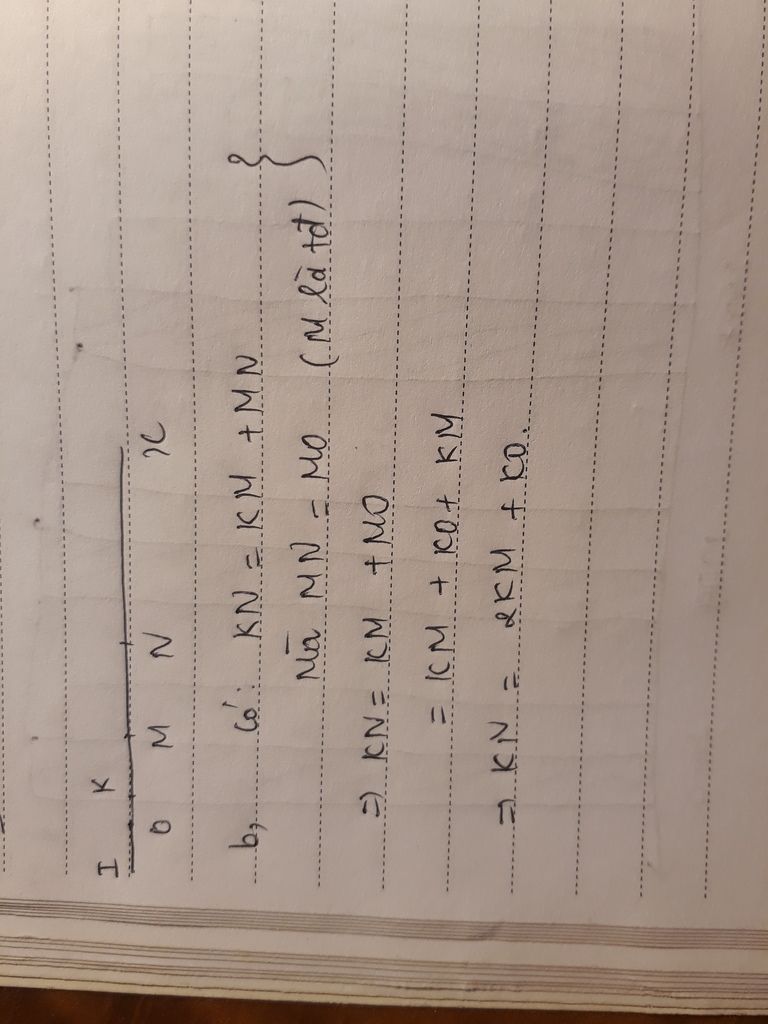 I K
O M N x
b, Có: KN = KM + MN }
Mà MN = MO (M là tđ) }
=> KN = KM + MO
= KM + KO + KM
=> KN = 2KM + KO.